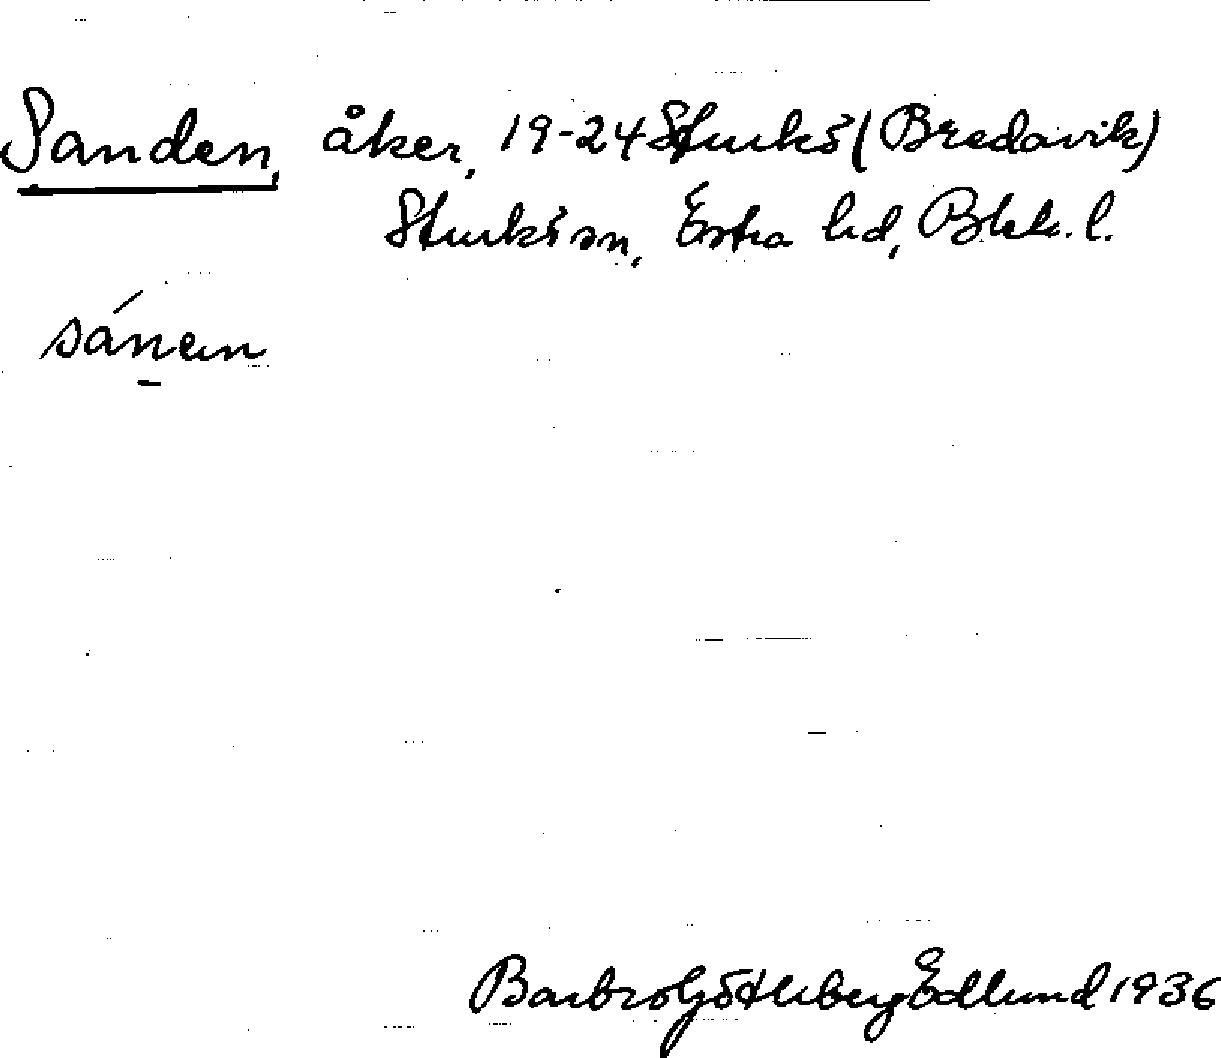 Sanden, åker, 19-24 Sturkö (Bredavik)
Sturkö sn, Östra hd, Blek. l.
sánen
Barbro Götheberg Edlund 1936